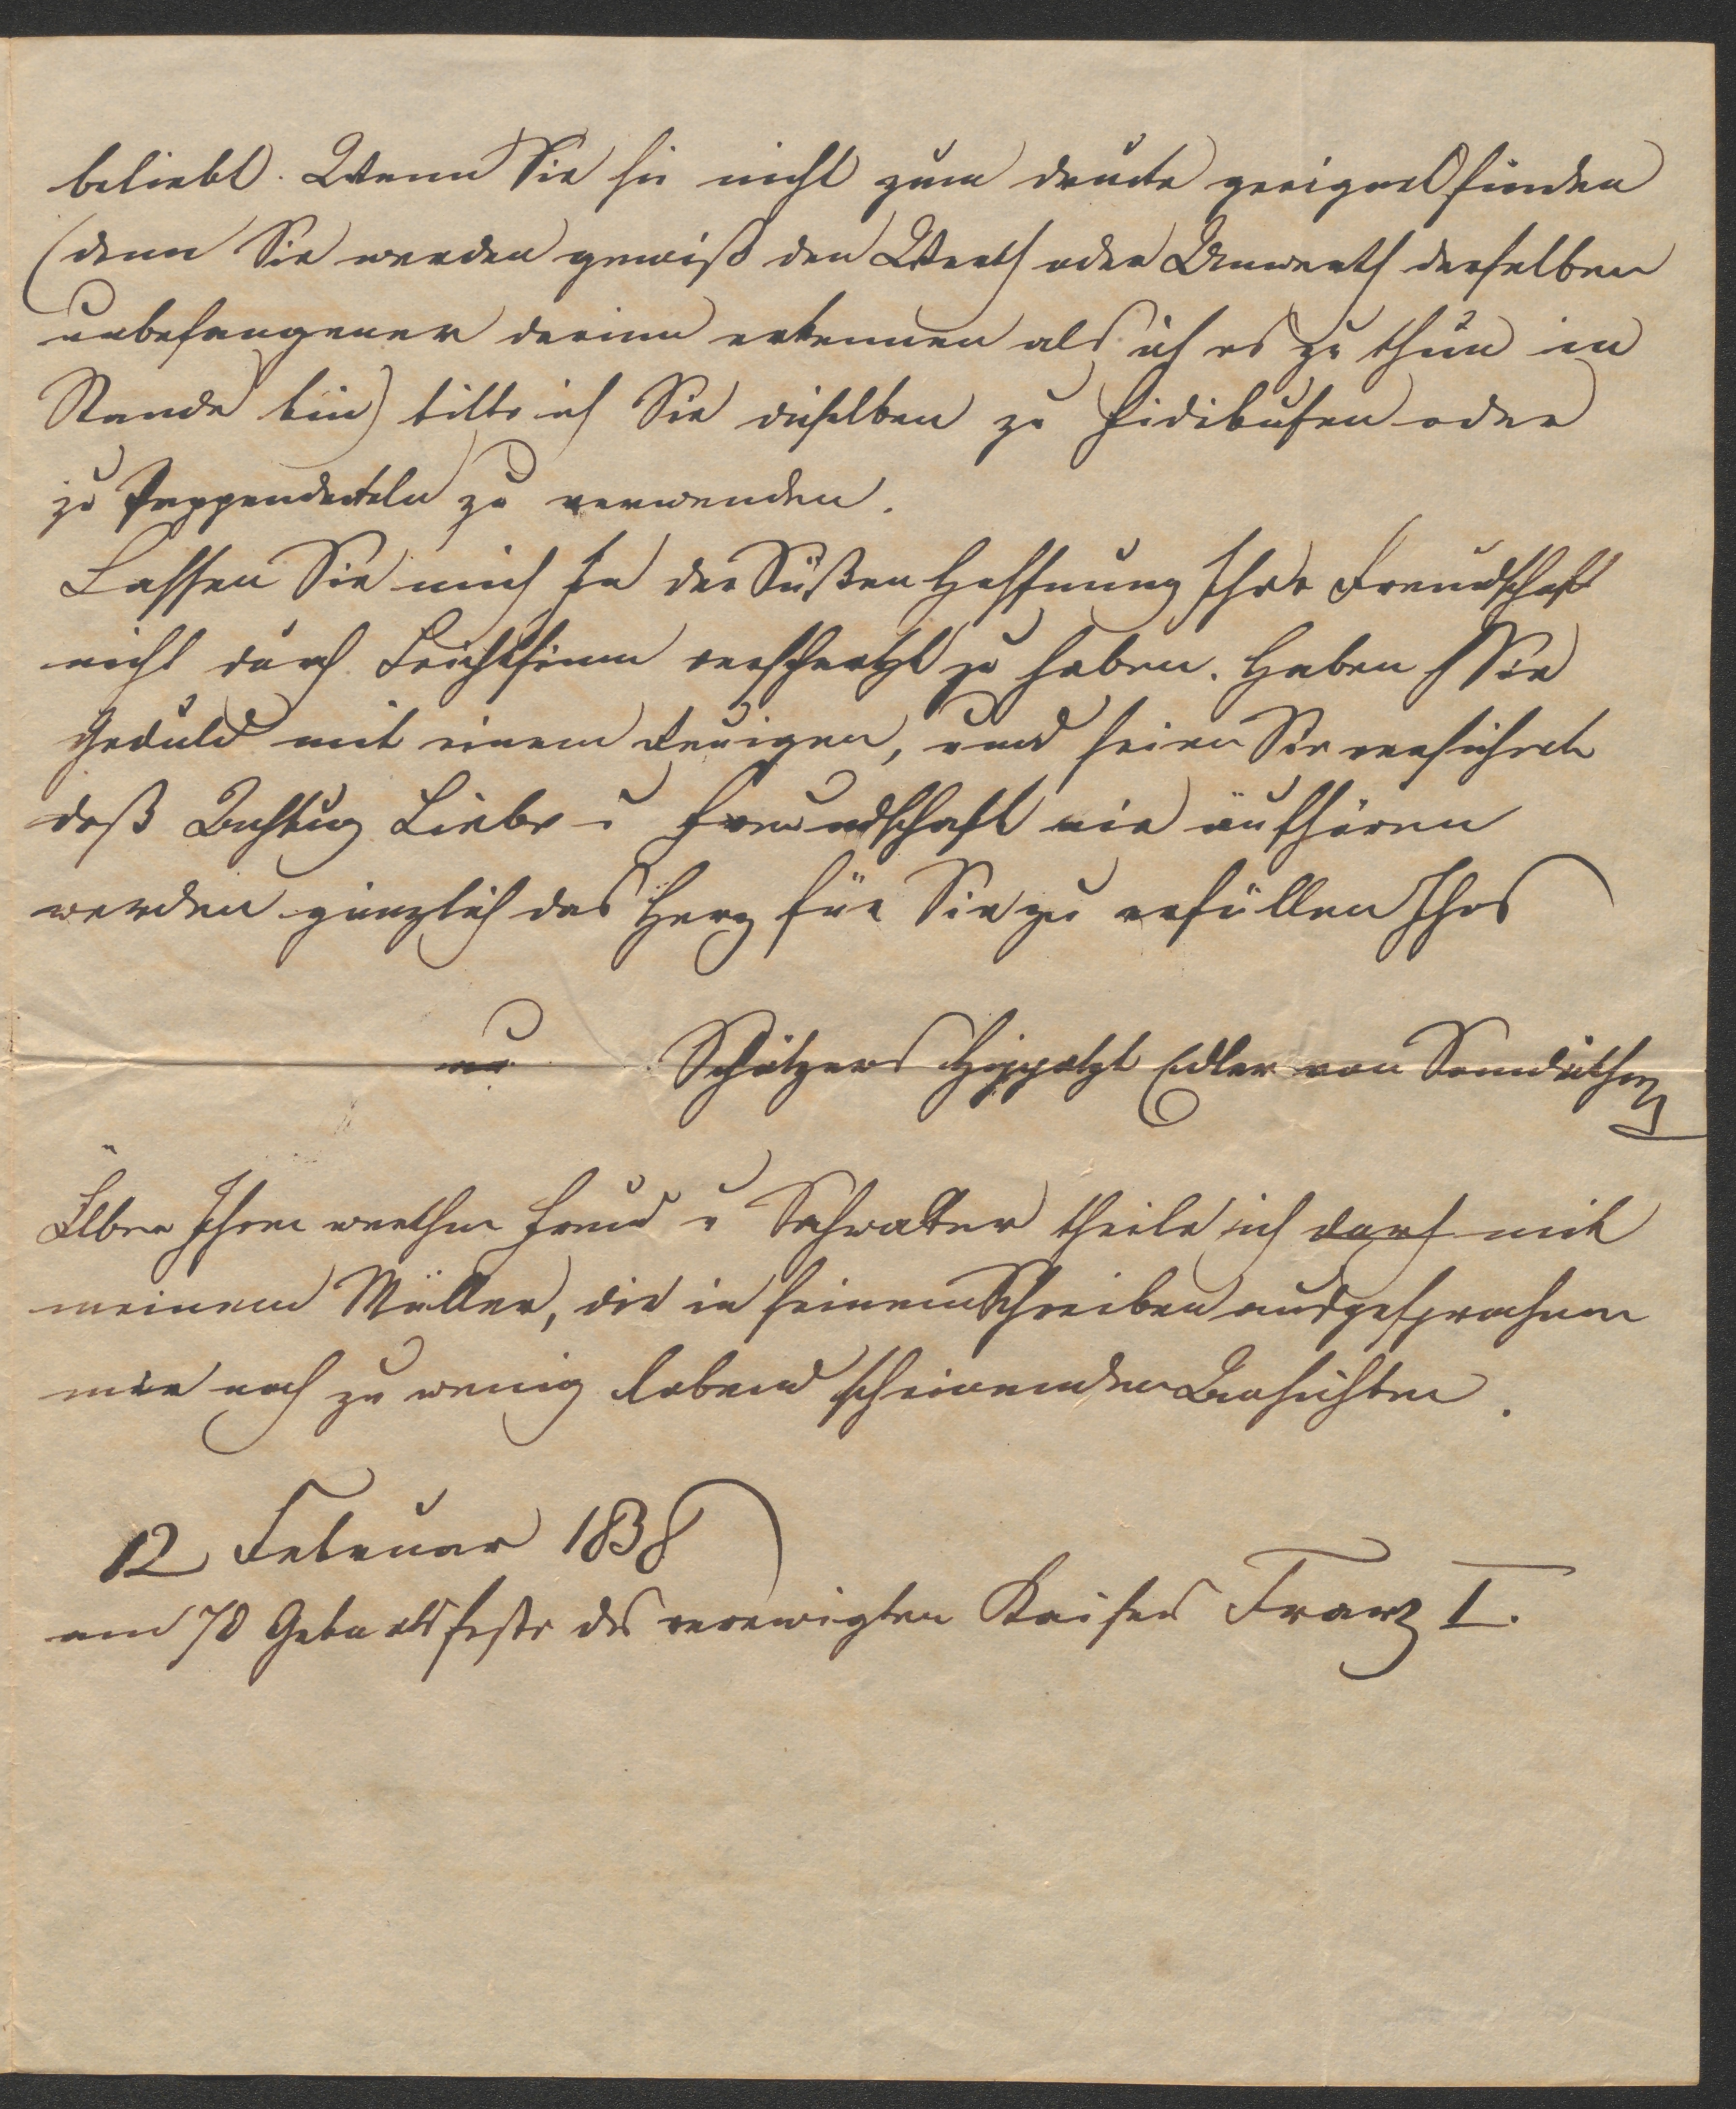 beliebt. Wenn Sie sie nicht zum drucke geeignet finden
(denn Sie werden gewiß den Werth oder Unwerth derselben
unbefangener darinn erkennen als ich es zu thun in
Stande bin) bitte ich Sie dieselben zu Fidibusen oder
zu Pappendeckeln zu verwenden.
Lassen Sie mich in der Süßen Hoffnung Ihre Freundschaft
nicht durch Leichtsinn verscherzt zu haben. Haben Sie
Geduld mit einem Reuigen, und seien Sie versichert
daß Achtung Liebe u Freundschaft nie aufhören
werden gänzlich das Herz für Sie zu erfüllen Ihres
Schätzers Edler von
Über Ihren werthen Freund u Sachwalter theile ich mit
meinem Müller, die in seinem Schreiben ausgesprochenen
mir noch zu wenig lobend scheinenden Ansichten.
12 Februar 1838
am 70 Geburtsfeste des verewigten Kaisers Franz I.